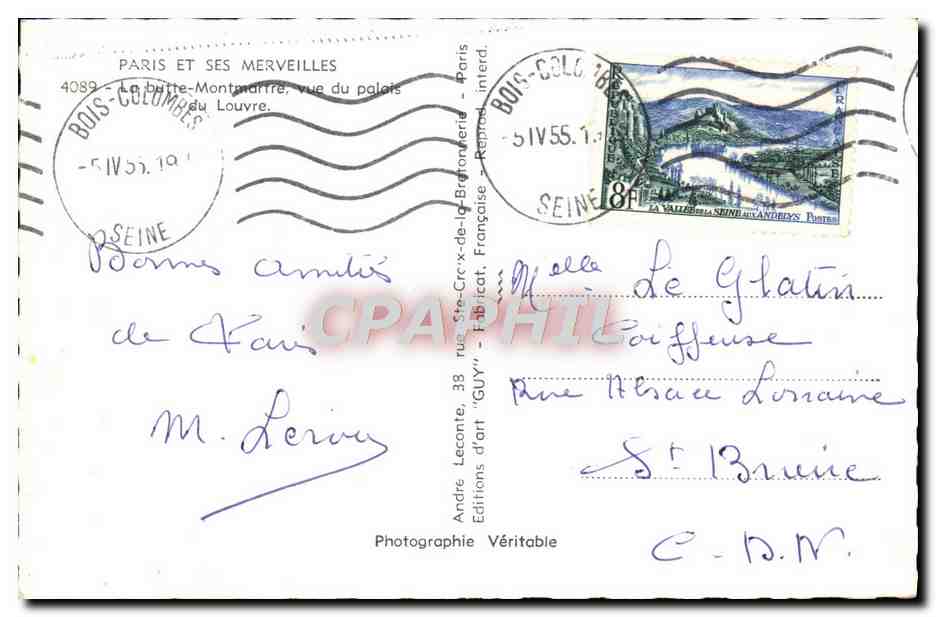 PARIS ET SES MERVEILLES
4089 - La butte-Montmartre, vue du palais
du Louvre.
BOIS-COLOMBES
-5 IV 55. 19
SEINE
Bonnes amitiés
de Paris
M. Leroy
Photographie Véritable
André Leconte, 38 rue Ste-Croix-de-la-Bretonnerie - Paris
Editions d'art "GUY" - Fabricat. Française - Reprod. interd.
BOIS-COLOMBES
-5 IV 55. 19
SEINE
RÉPUBLIQUE
FRANÇAISE
8F
LA VALLÉE DE LA SEINE AUX ANDELYS POSTES
Melle Le Glatin
Coiffeuse
Rue Alsace Lorraine
St Brieuc
C.D.N.
CPAPHIL